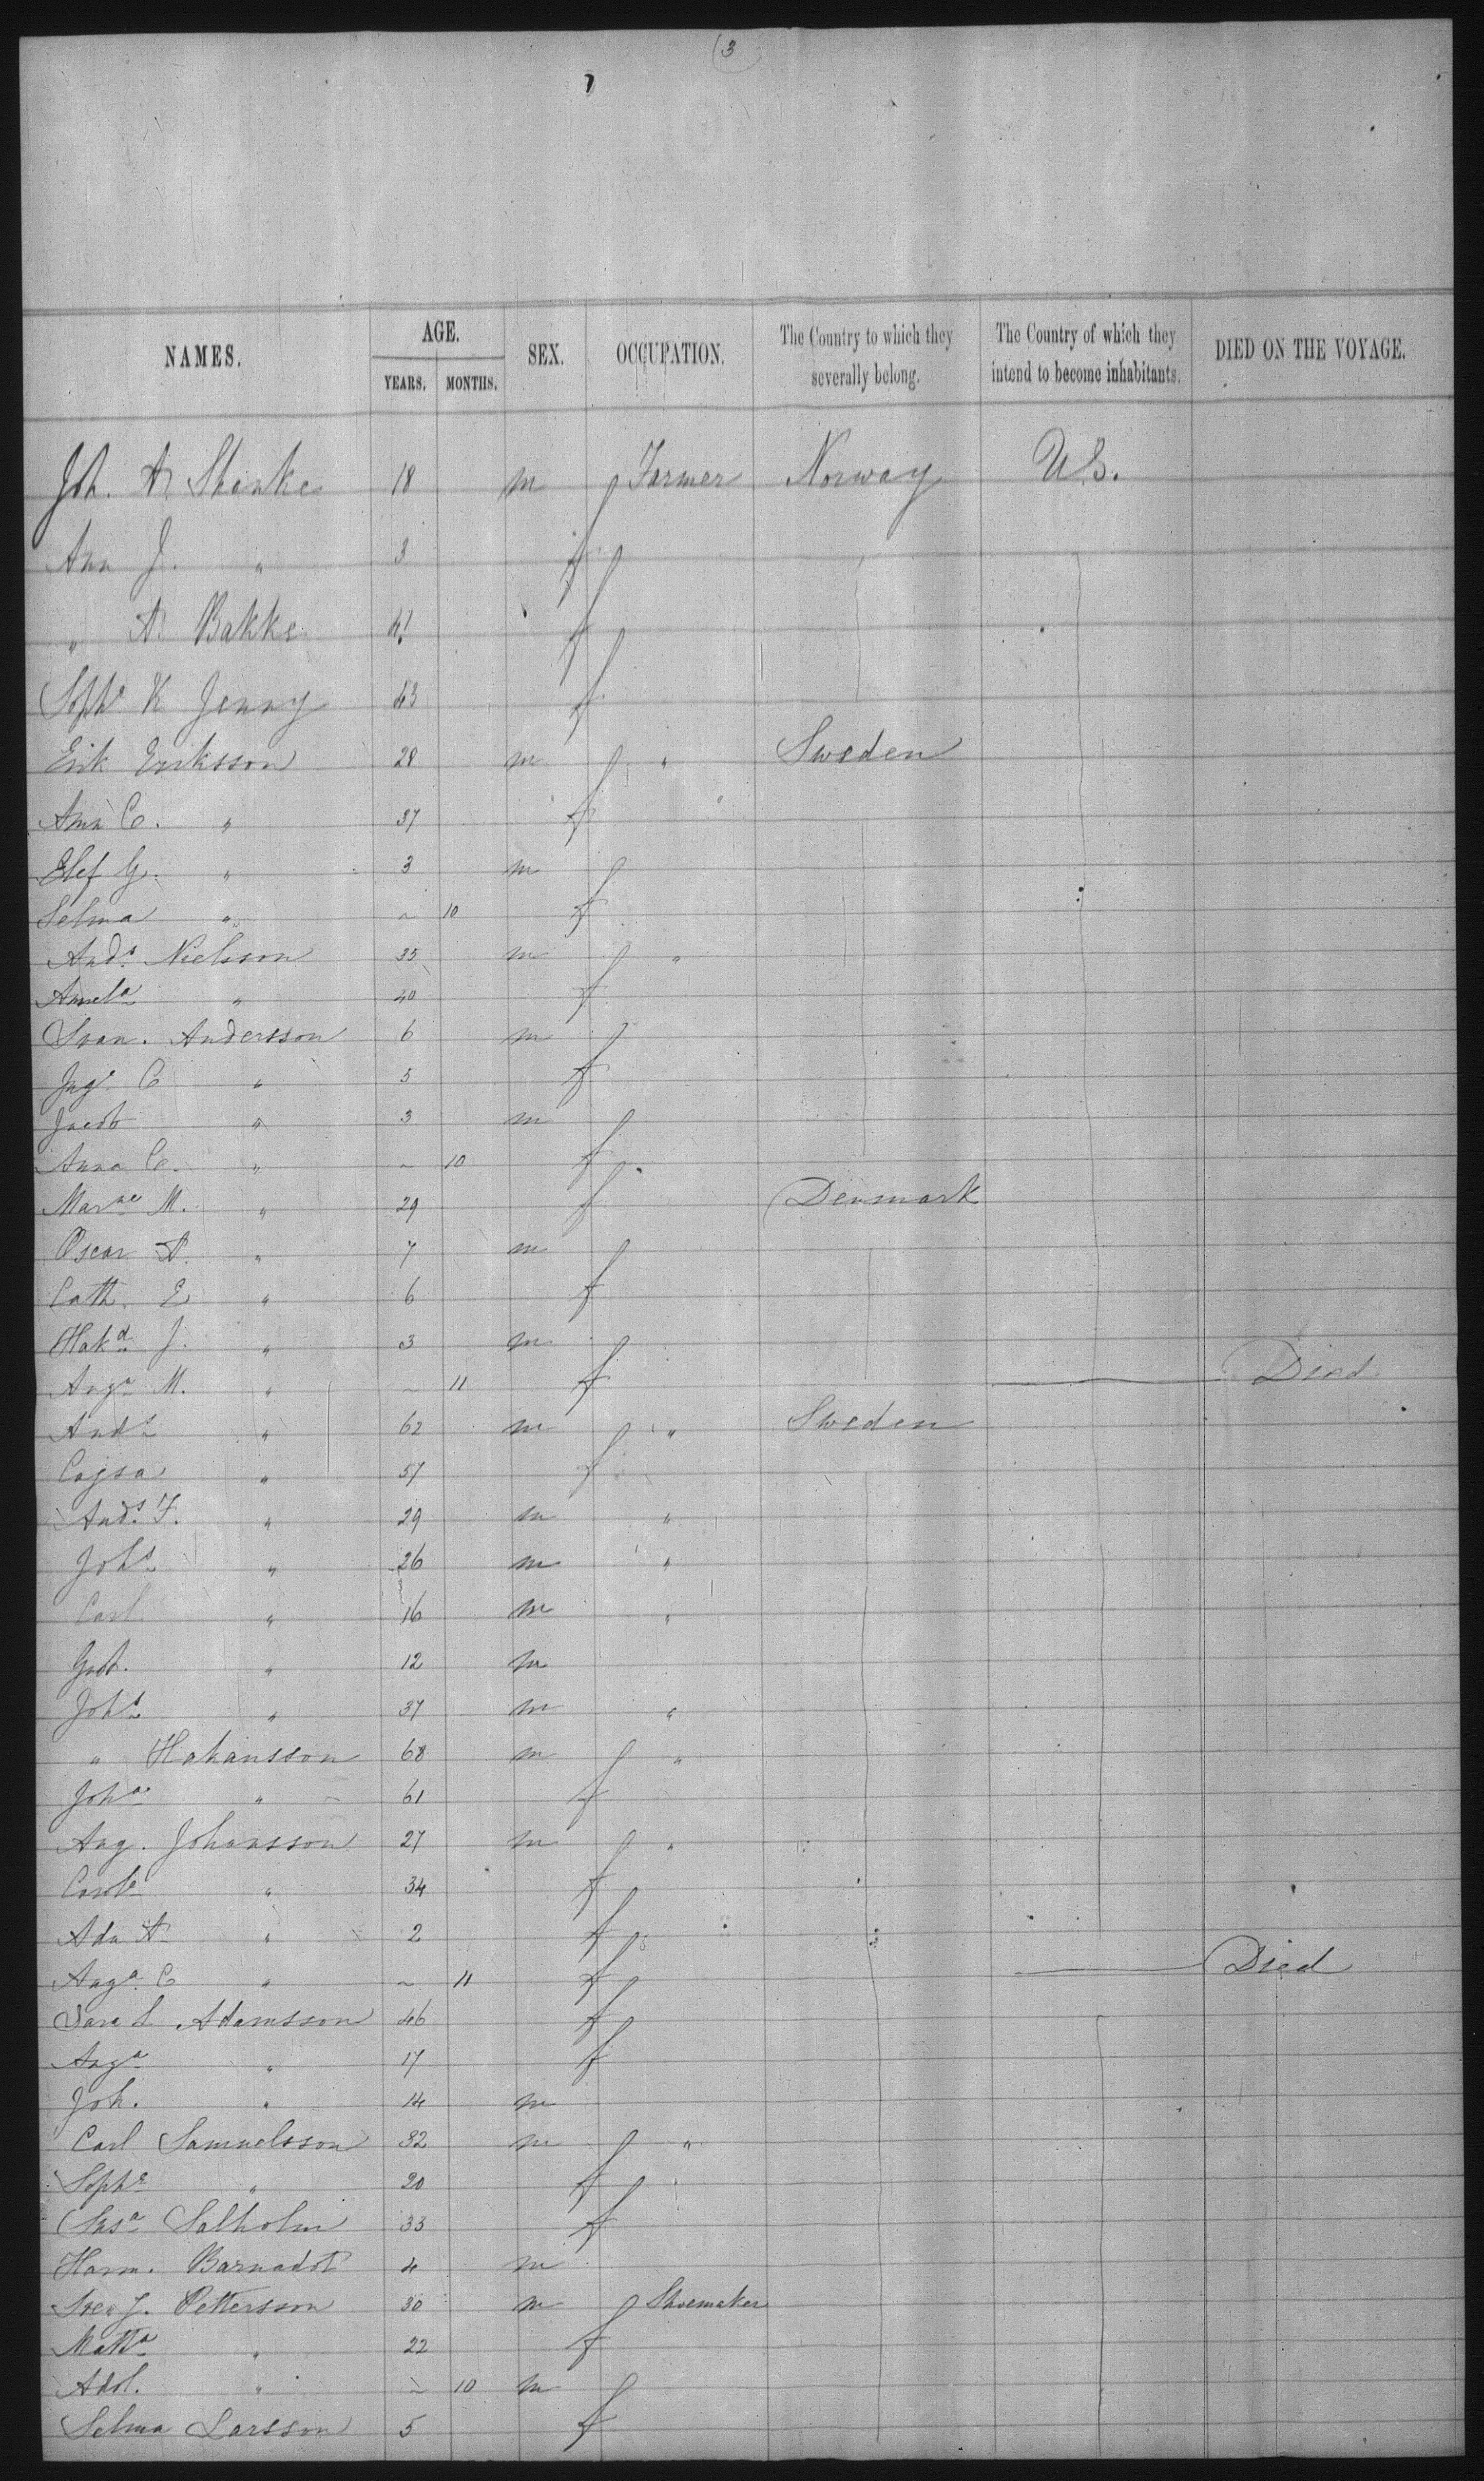 (3
NAMES. AGE. YEARS. MONTHS. SEX. OCCUPATION. The Country to which they severally belong. The Country of which they intend to become inhabitants. DIED ON THE VOYAGE.
Joh. A. Shenke 18 m Farmer Norway U.S.
Ann J. " 3 f
" A. Bakke 41 f
Sophe K Jenny 43 f
Erik Eriksson 28 m " Sweden
Ann C. " 37 f
Elef G. " 3 m
Selma " ~ 10 f
Ands Nielsson 35 m "
Annela " 40 f
Svan. Andersson 6 m
Inge C " 5 f
Jacob " 3 m
Anna C. " ~ 10 f
Marne M. " 29 f Denmark
Oscar A. " 7 m
Cath. E " 6 f
Hakd J. " 3 m
Auga M. " ~ 11 f Died
Ands " 62 m " Sweden
Cajsa " 57 f
Ands F. " 29 m "
Johs " 26 m "
Carl " 16 m "
Gust. " 12 m
Johs " 37 m "
" Hakansson 68 m "
Joha " 61 f
Aug. Johansson 27 m "
Carole " 34 f
Ada A " 2 f
Auga C " ~ 11 f Died
Sara L Adamsson 46 f
Auga " 17 f
Joh. " 14 m
Carl Samuelsson 32 m "
Sophe " 20 f
Susa Salholm 33 f
Harm. Barnadot 4 m
Sve J. Pettersson 30 m Shoemaker
Matta " 22 f
Adol. " ~ 10 m
Selma Larsson 5 f